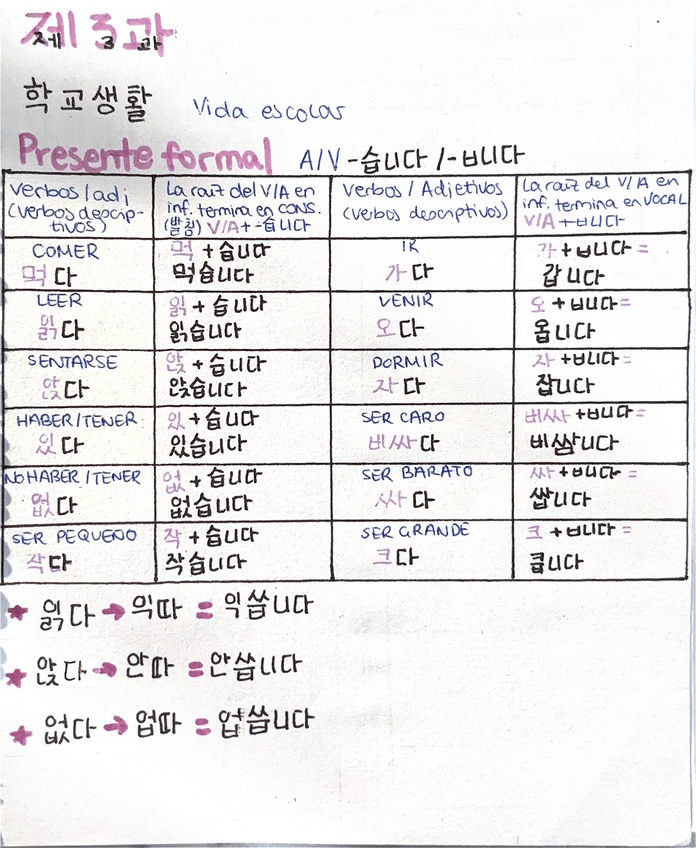 제 3 과
학교생활 Vida escolar
Presente formal A/V -습니다 /-ㅂ니다
Verbos / adj (verbos descriptivos)
La raíz del V/A en inf. termina en CONS. (받침) V/A + -습니다
Verbos / Adjetivos (verbos descriptivos)
La raíz del V/A en inf. termina en VOCAL V/A +-ㅂ니다
COMER 먹다
먹 + 습니다
먹습니다
IR 가다
가 + ㅂ니다 =
갑니다
LEER 읽다
읽 + 습니다
읽습니다
VENIR 오다
오 + ㅂ니다 =
옵니다
SENTARSE 앉다
앉 + 습니다
앉습니다
DORMIR 자다
자 + ㅂ니다 =
잡니다
HABER/TENER 있다
있 + 습니다
있습니다
SER CARO 비싸다
비싸 + ㅂ니다 =
비쌉니다
NO HABER / TENER 없다
없 + 습니다
없습니다
SER BARATO 싸다
싸 + ㅂ니다 =
쌉니다
SER PEQUEÑO 작다
작 + 습니다
작습니다
SER GRANDE 크다
크 + ㅂ니다 =
큽니다
★ 읽다 → 익따 = 익씁니다
★ 앉다 → 안따 = 안씁니다
★ 없다 → 업따 = 업씁니다